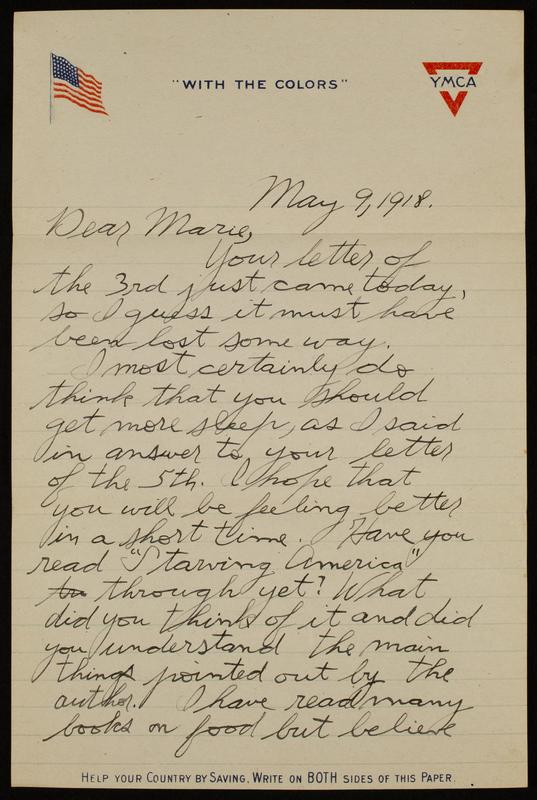 "WITH THE COLORS"
YMCA
May 9, 1918.
Dear Marie,
Your letter of
the 3rd just came today,
so I guess it must have
been lost some way.
I most certainly do
think that you should
get more sleep, as I said
in answer to your letter
of the 5th. I hope that
you will be feeling better
in a short time. Have you
read "Starving America"
through yet? What
did you think of it and did
you understand the main
things pointed out by the
author. I have read many
books on food but believe
HELP YOUR COUNTRY BY SAVING. WRITE ON BOTH SIDES OF THIS PAPER.